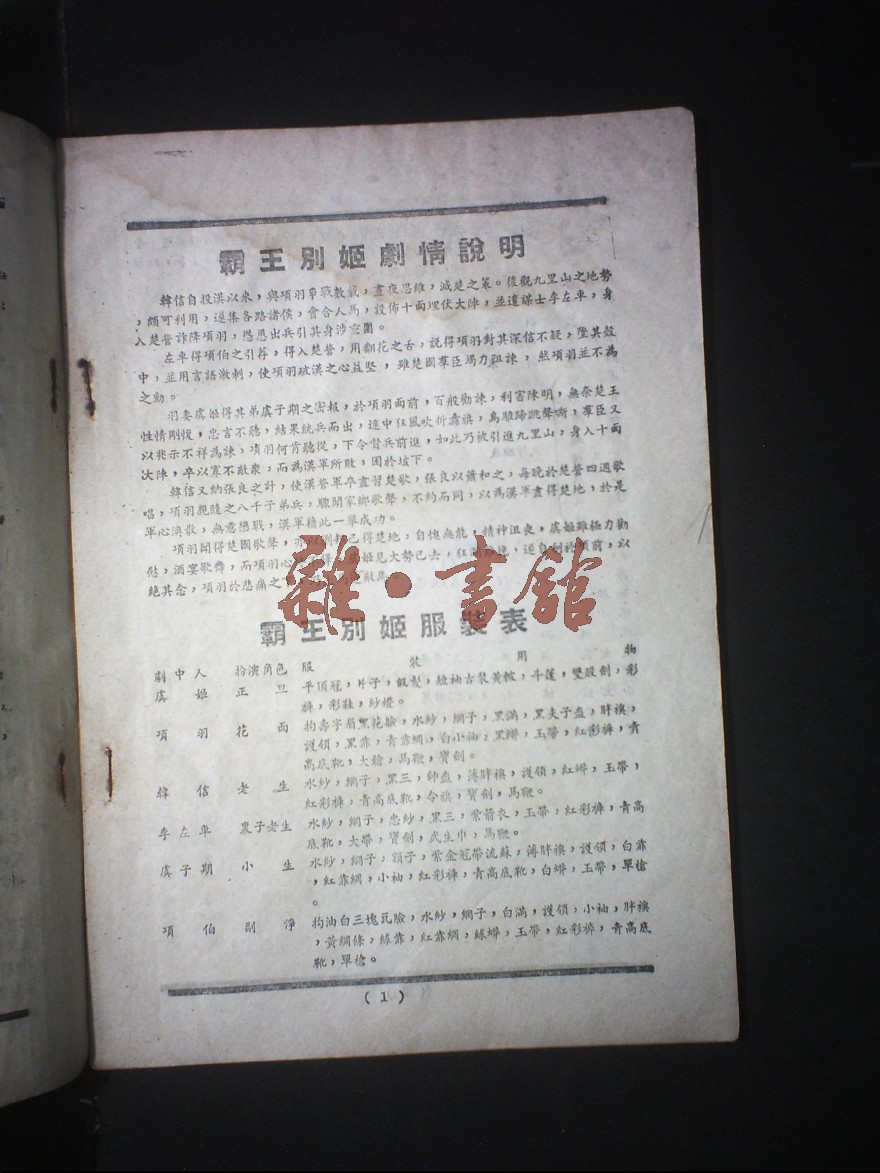 霸王別姬劇情說明
韓信自投漢以來，與項羽爭戰數載，晝夜思維，滅楚之策。復觀九里山之地勢
，頗可利用，遂集各路諸侯，會合人馬，設佈十面埋伏大陣，並遣謀士李左車，身
入楚營詐降項羽，慫恿出兵引其身涉重圍。
左車得項伯之引荐，得入楚營，用翻花之舌，說得項羽對其深信不疑，墮其彀
中，並用言語激刺，使項羽破漢之心益堅，雖楚國羣臣竭力阻諫，然項羽並不為
之動。
羽妻虞姬得其弟虞子期之密報，於項羽面前，百般勸諫，利害陳明，無奈楚王
性情剛愎，忠言不聽，結果統兵而出，途中狂風吹折纛旗，烏騅蹄跳聲嘶，羣臣又
以兆示不祥為諫，項羽何肯聽從，下令督兵前進，如此乃被引進九里山，身入十面
大陣，卒以寡不敵衆，而為漢軍所敗，困於垓下。
韓信又納張良之計，使漢營軍卒盡習楚歌，張良以簫和之，每晚於楚營四週歌
唱，項羽親隨之八千子弟兵，驟聞家鄉歌聲，不約而同，以為漢軍盡得楚地，於是
軍心渙散，無意戀戰，漢軍藉此一舉成功。
項羽聞得楚國歌聲，亦以劉邦已得楚地，自愧無能，精神沮喪，虞姬雖極力勸
慰，酒宴歌舞，而項羽心
姬見大勢已去，
遂自刎於
前，以
絕其念，項羽於悲痛之
敵
雜·書館
霸王別姬服裝表
劇中人 扮演角色 服裝用物
虞姬 正旦 平頂冠，片子，假髮，短袖古裝黃帔，斗蓬，雙股劍，彩
褲，彩鞋，紗燈。
項羽 花面 抅壽字眉黑花臉，水紗，網子，黑滿，黑夫子盔，胖襖，
護領，黑靠，青靠綢，白小袖，黑縧，玉帶，紅彩褲，青
高底靴，大鎗，馬鞭，寶劍。
韓信 老生 水紗，網子，黑三，帥盔，薄胖襖，護領，紅縧，玉帶，
紅彩褲，青高底靴，令旗，寶劍，馬鞭。
李左車 裏子老生 水紗，網子，忠紗，黑三，紫箭衣，玉帶，紅彩褲，青高
底靴，大帶，寶劍，武生巾，馬鞭。
虞子期 小生 水紗，網子，額子，紫金冠帶流蘇，薄胖襖，護領，白靠
，紅靠綢，小袖，紅彩褲，青高底靴，白縧，玉帶，單槍
。
項伯 副淨 抅油白三塊瓦臉，水紗，網子，白滿，護領，小袖，胖襖
，黃綢條，綠靠，紅靠綢，綠縧，玉帶，紅彩褲，青高底
靴，單槍。
(1)